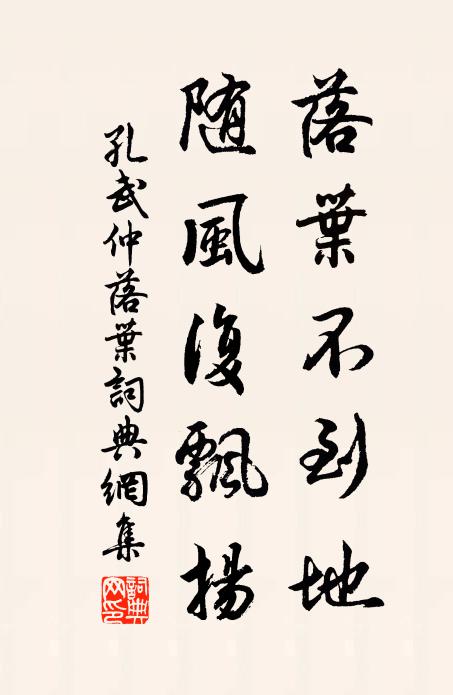 落葉不到地
随風復飄揚
孔武仲落葉詞典網集
詞典網印